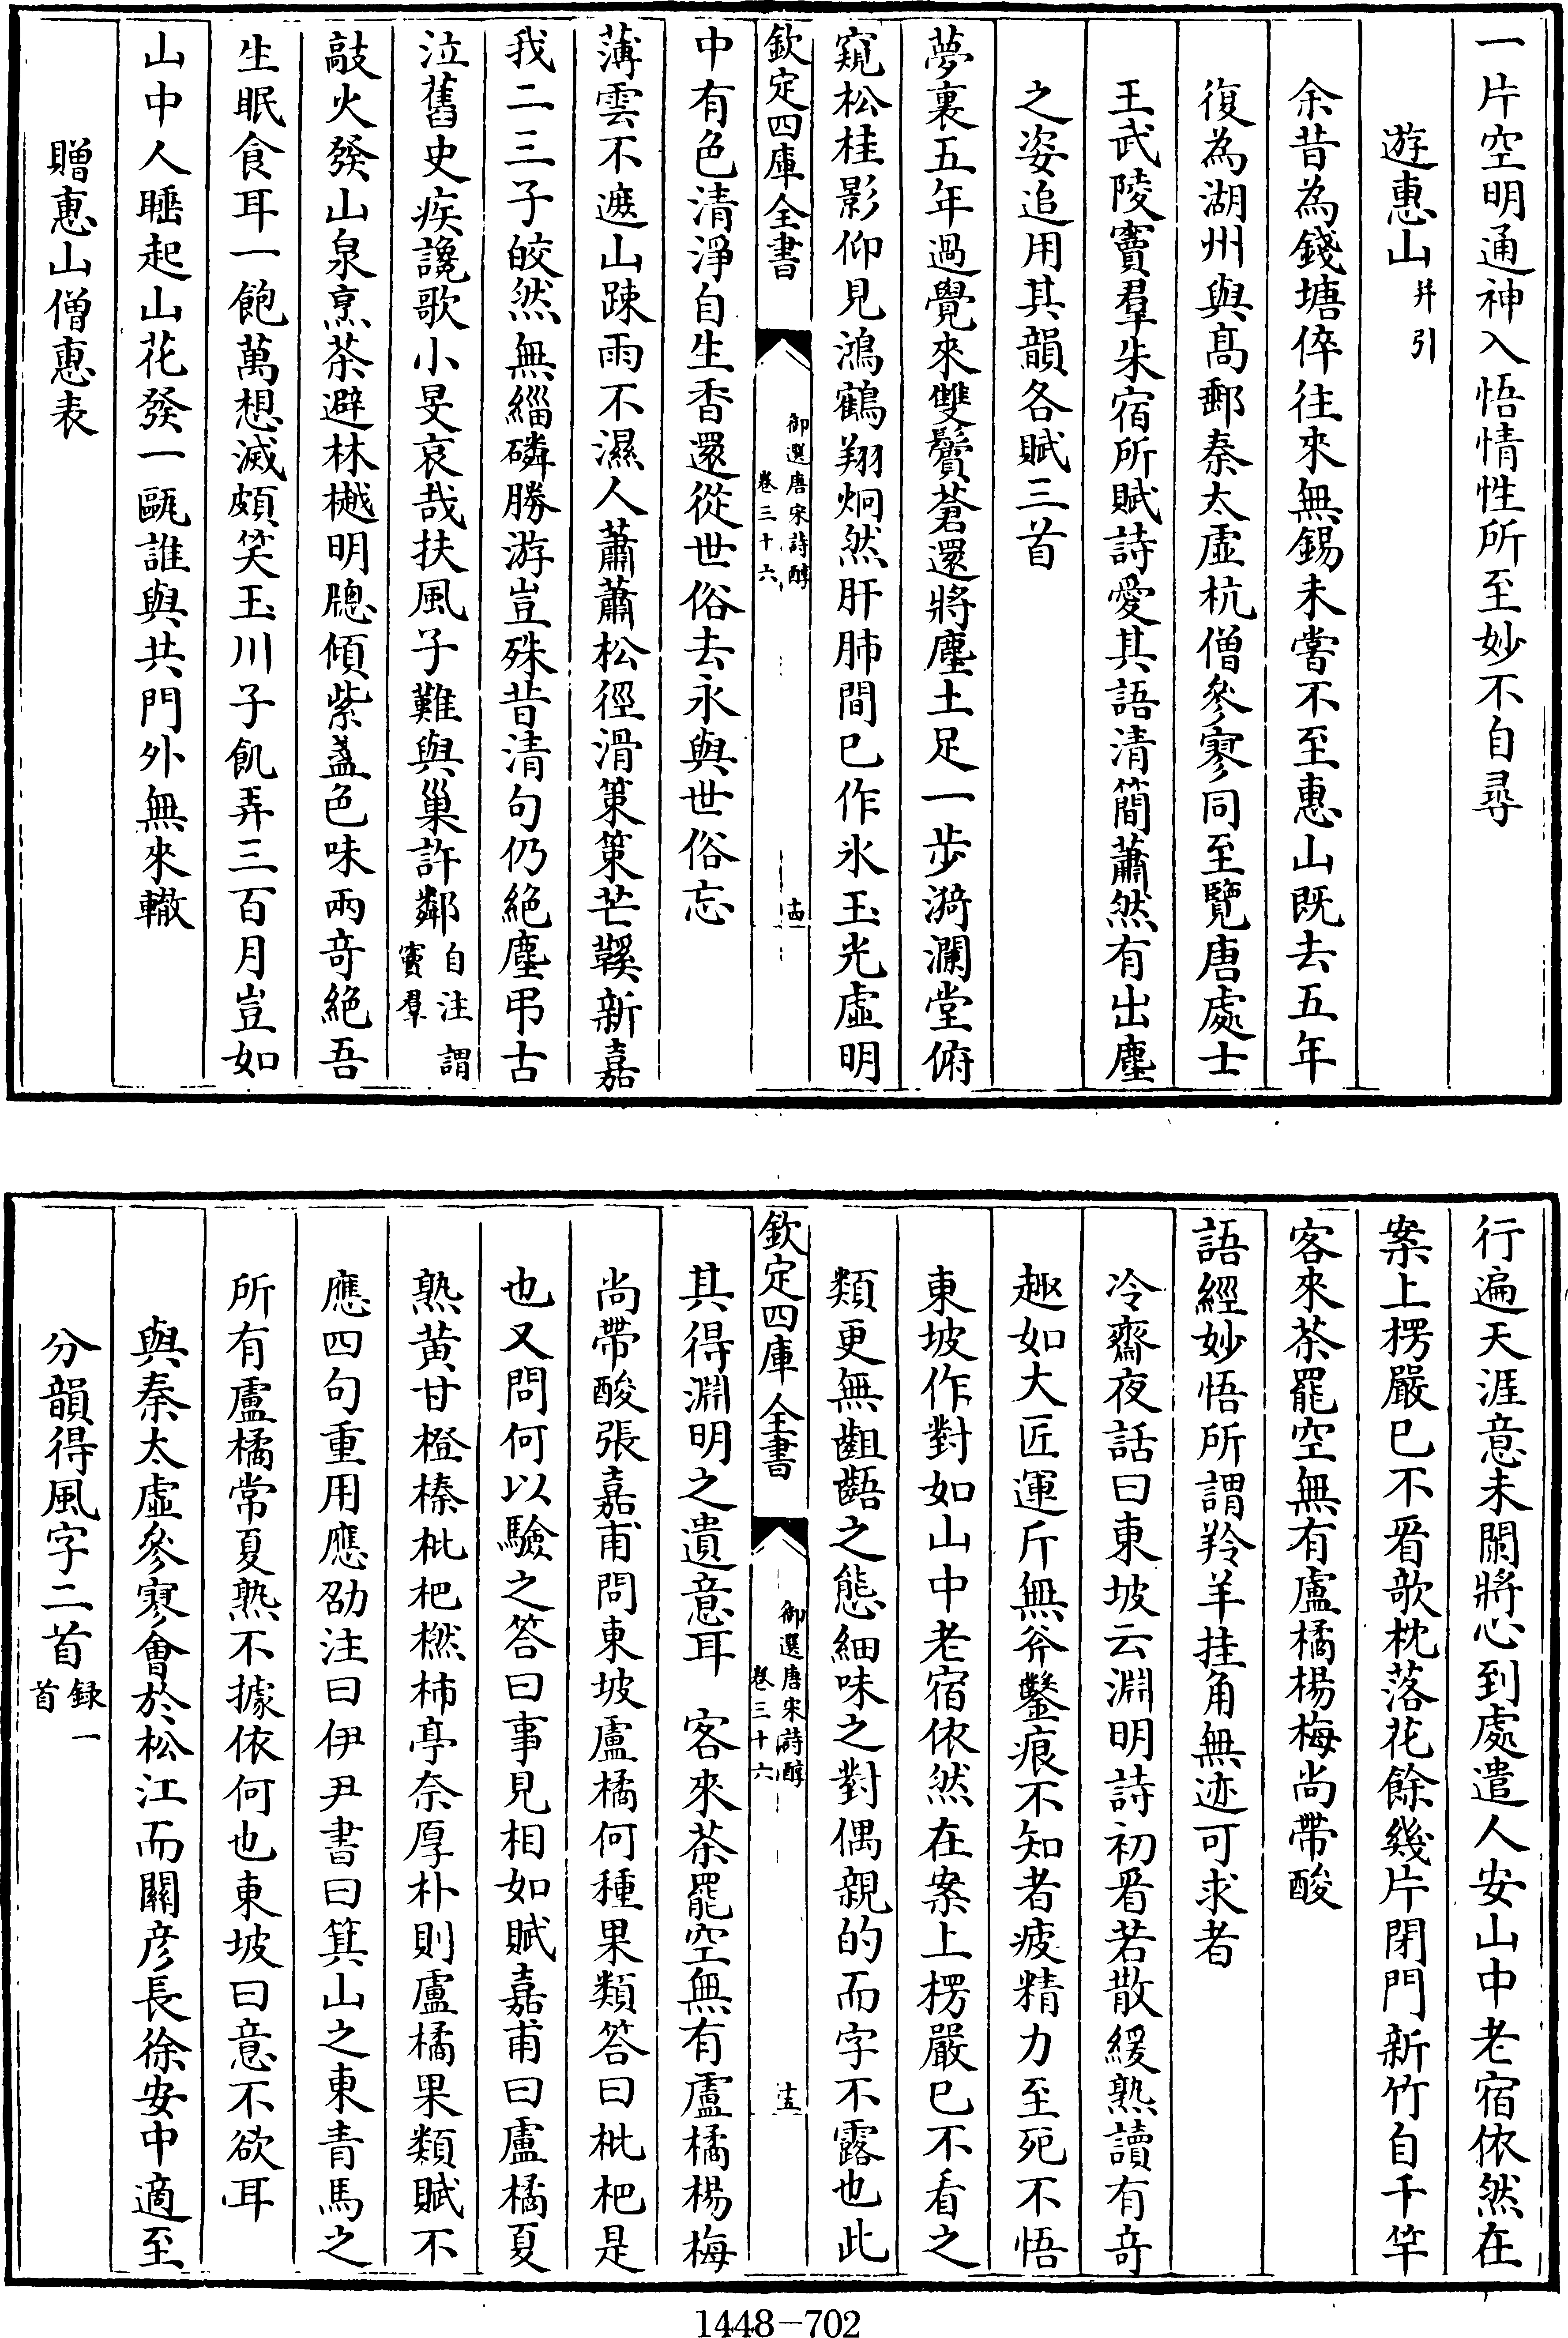 一片空明通神入悟情性所至妙不自尋
遊惠山并引
余昔為錢塘倅往來無錫未嘗不至惠山既去五年
復為湖州與高郵秦太虛杭僧參寥同至覽唐處士
王武陵竇羣朱宿所賦詩愛其語清簡蕭然有出塵
之姿追用其韻各賦三首
夢裏五年過覺來雙鬢蒼還將塵土足一步漪瀾堂俯
窺松桂影仰見鴻鶴翔炯然肝肺間已作氷玉光虛明
欽定四庫全書
御選唐宋詩醇
卷三十六
十四
中有色清淨自生香還從世俗去永與世俗忘
薄雲不遮山踈雨不濕人蕭蕭松徑滑策策芒鞵新嘉
我二三子皎然無緇磷勝游豈殊昔清句仍絕塵弔古
泣舊史疾讒歌小旻哀哉扶風子難與巢許鄰自注謂
竇羣
敲火發山泉烹茶避林樾明牎傾紫盞色味兩奇絕吾
生眠食耳一飽萬想滅頗笑玉川子飢弄三百月豈如
山中人睡起山花發一甌誰與共門外無來轍
贈惠山僧惠表
行遍天涯意未闌將心到處遣人安山中老宿依然在
案上楞嚴已不看欹枕落花餘幾片閉門新竹自千竿
客來茶罷空無有盧橘楊梅尚帶酸
語經妙悟所謂羚羊挂角無迹可求者
冷齋夜話曰東坡云淵明詩初看若散緩熟讀有奇
趣如大匠運斤無斧鑿痕不知者疲精力至死不悟
東坡作對如山中老宿依然在案上楞嚴已不看之
類更無齟齬之態細味之對偶親的而字不露也此
欽定四庫全書
御選唐宋詩醇
卷三十六
十五
其得淵明之遺意耳　客來茶罷空無有盧橘楊梅
尚帶酸張嘉甫問東坡盧橘何種果類答曰枇杷是
也又問何以驗之答曰事見相如賦嘉甫曰盧橘夏
熟黃甘橙楱枇杷橪柿亭奈厚朴則盧橘果類賦不
應四句重用應劭注曰伊尹書曰箕山之東青馬之
所有盧橘常夏熟不據依何也東坡曰意不欲耳
與秦太虛參寥會於松江而關彥長徐安中適至
分韻得風字二首録一
首
1448-702